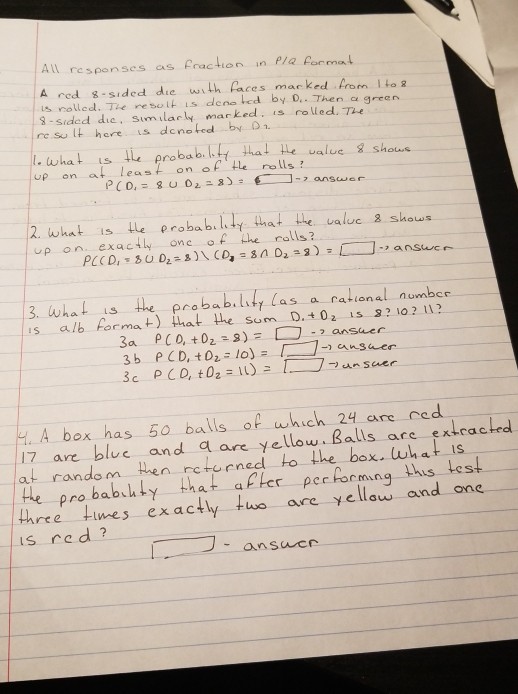 All responses as fraction in P/Q format
A red 8-sided die with faces marked from 1 to 8
is rolled. The result is denoted by D1. Then a green
8-sided die, similarly marked, is rolled. The
result here is denoted by D2
1. What is the probability that the value 8 shows
up on at least on of the rolls?
P(D1 = 8 U D2 = 8) = -> answer
2. What is the probability that the value 8 shows
up on exactly one of the rolls?
P((D1 = 8 U D2 = 8) \ (D1 = 8 ∩ D2 = 8) = -> answer
3. What is the probability (as a rational number
is a/b format) that the sum D1 + D2 is 8? 10? 11?
3a P(D1 + D2 = 8) = -> answer
3b P(D1 + D2 = 10) = -> answer
3c P(D1 + D2 = 11) = -> answer
4. A box has 50 balls of which 24 are red
17 are blue and 9 are yellow. Balls are extracted
at random then returned to the box. What is
the probability that after performing this test
three times exactly two are yellow and one
is red?
- answer